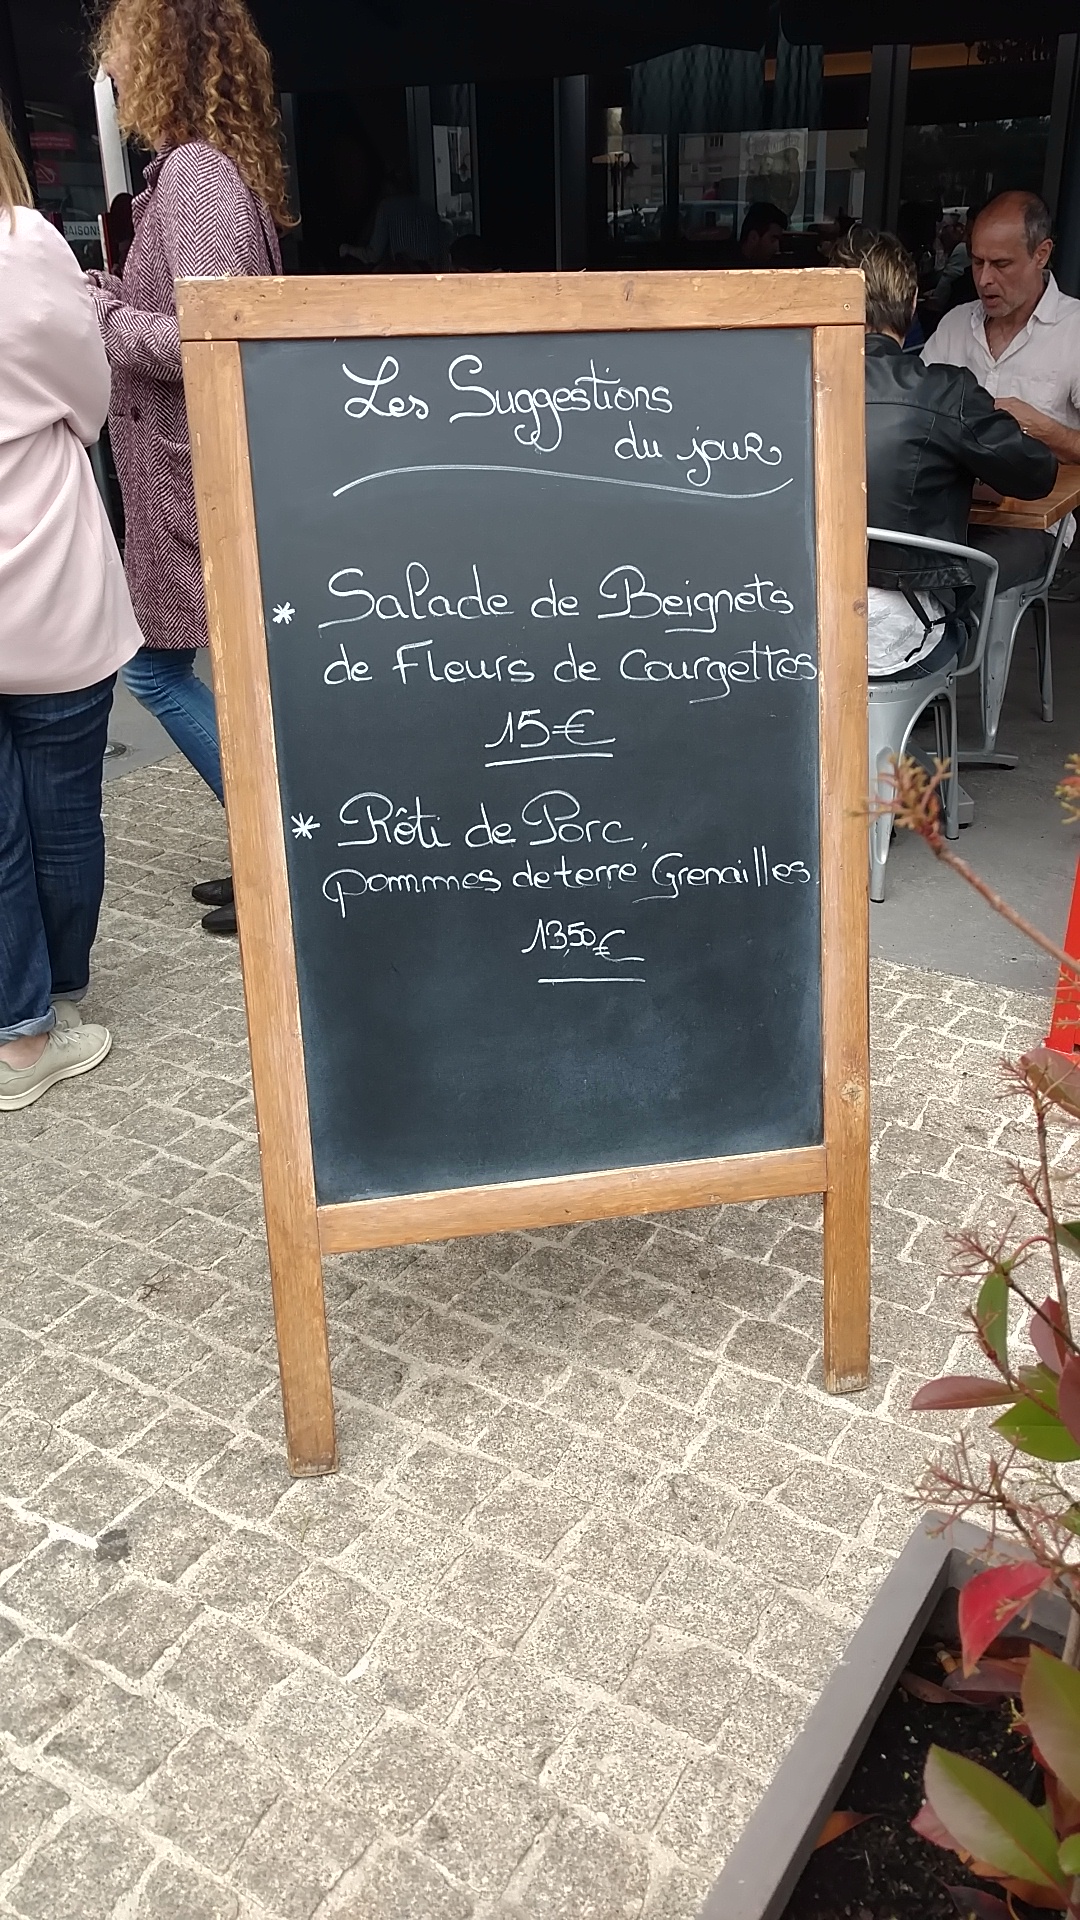 SAISON
Les Suggestions
du jour
* Salade de Beignets
de Fleurs de Courgettes
15€
* Rôti de Porc,
pommes de terre Grenailles.
13,50€